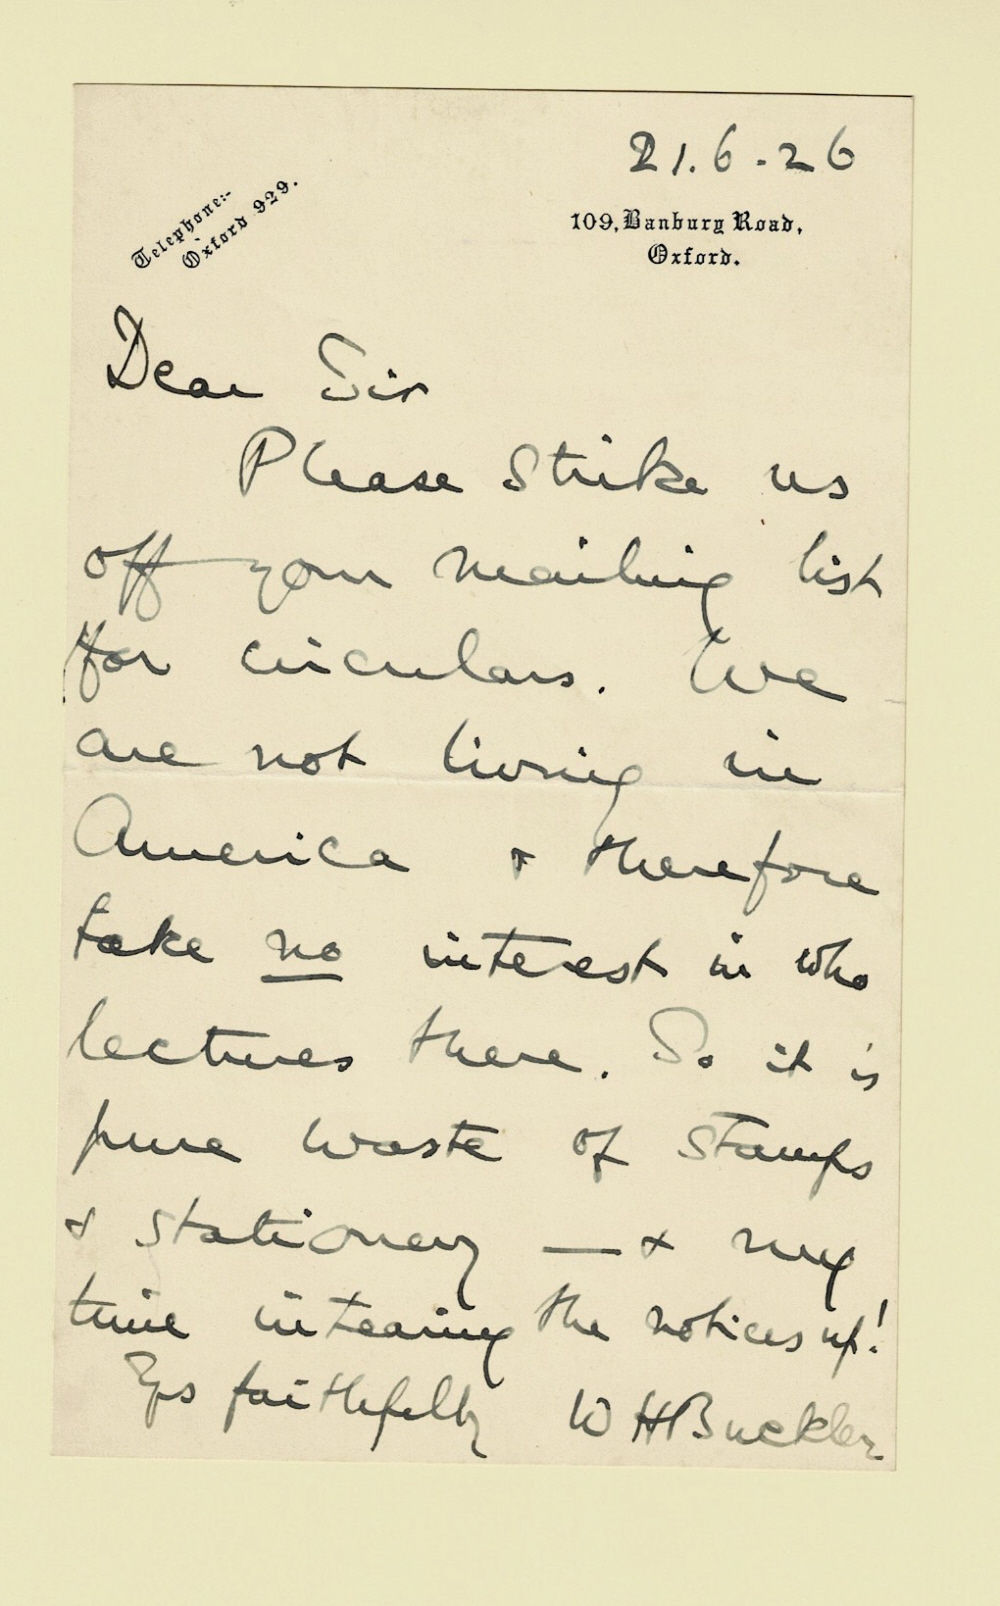 21.6.26
Telephone:-
Oxford 929.
109, Banbury Road,
Oxford.
Dear Sir
Please strike us
off your mailing list
for circulars. We
are not living in
America & therefore
take no interest in who
lectures there. So it is
pure waste of stamps
& stationery — & my
time in tearing the notices up!
Yrs faithfully W H Buckler